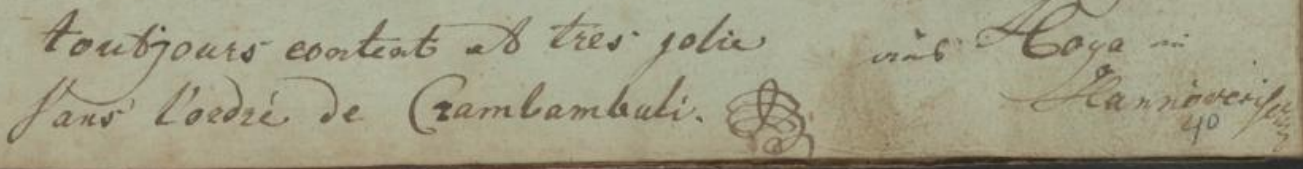 toutjours content et tres jolie
sans l'ordre de Crambambuli.
aus Hoya im
Hannöverischen
40